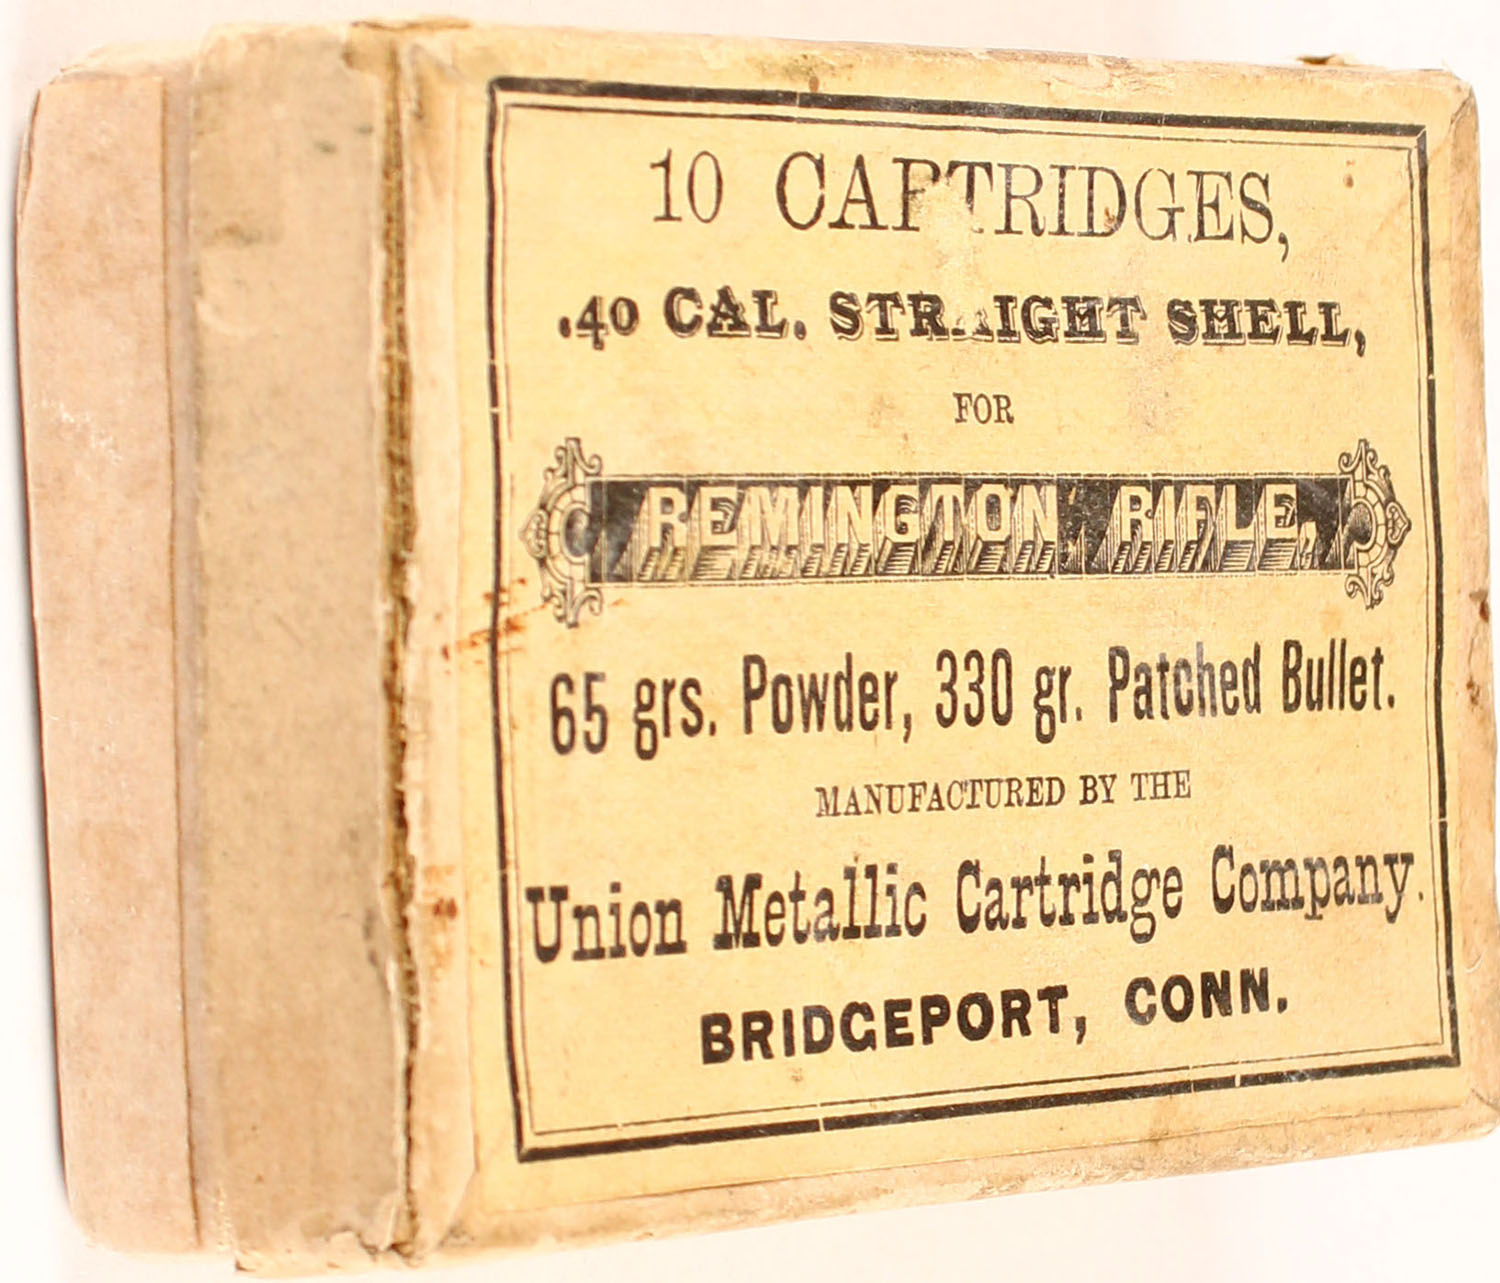 10 CARTRIDGES,
.40 CAL. STRAIGHT SHELL,
FOR
REMINGTON RIFLE,
65 grs. Powder, 330 gr. Patched Bullet.
MANUFACTURED BY THE
Union Metallic Cartridge Company.
BRIDGEPORT, CONN.